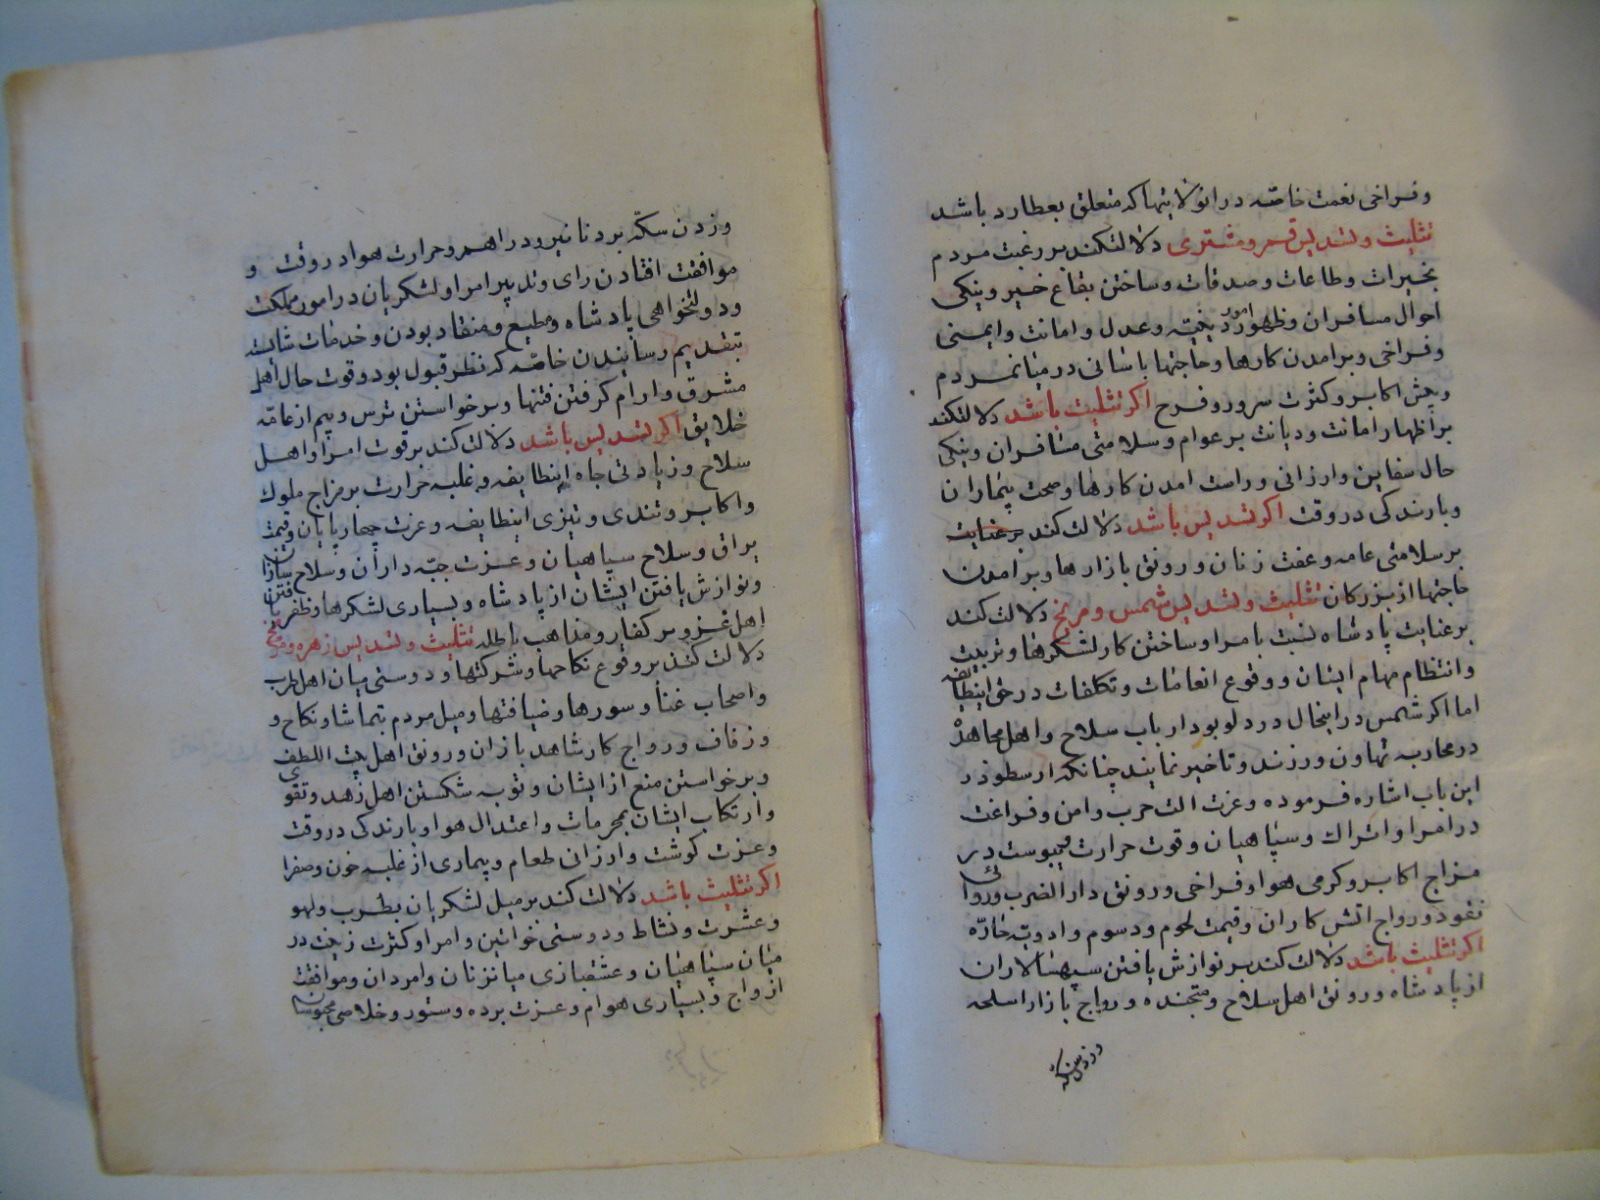 وفراخی نعمت خاصه در انولایتها که متعلق بعطارد باشد
تثلیث و تسدیس قمر و مشتری دلالتکند بر رغبت مردم
بخیرات وطاعات وصدقات وساختن بقاع خیر و نیکی
احوال مسافران وظهور امور دینیه وعدل وامانت وایمنی
وفراخی وبرامدن کارها وحاجتها باسانی در میانمردم
وعیش اکابر وکثرت سرور وفرح اکر تثلیث باشد دلالتکند
براظهار امانت ودیانت بر عوام وسلامتی مسافران ونیکی
حال سفاین وارزانی وراست امدن کارها وصحت بیماران
وبارندکی در وقت اکر تسدیس باشد دلالت کند بر عنایت
بر سلامتی عامه وعفت زنان ورونق بازارها وبرامدن
حاجتها از بزرکان تثلیث وتسدیس شمس ومریخ دلالت کند
بر عنایت پادشاه نسبت بامرا وساختن کار لشکرها وتربیت
وانتظام مهام ایشان ووقوع انعامات وتکلفات در حق اینطایفه
اما اکر شمس در اینحال در دلو بود ارباب سلاح واهل مجاهده
در محاربه تهاون ورزند وتاخیر نمایند چنانکه ارسطو در
این باب اشاره فرموده وعزت الت حرب وامن وفراغت
در امرا واتراک وسپاهیان وقوت حرارت ویبوست در
مزاج اکابر وکرمی هوا وفراخی ورونق دار الضرب وروائی
نقود ورواج اتش کاران وقیمت لحوم ودسوم وادویه حاره
اکر تثلیث باشد دلالت کند بر نوازش یافتن سپهسالاران
از پادشاه ورونق اهل سلاح ومتجنده ورواج بازار اسلحه
وزدن سکه
وزدن سکه بر دنانیر ودراهم وحرارت هوا در وقت و
موافقت افتادن رای وتدبیر امرا ولشکریان در امور مملکت
ودولتخواهی پادشاه ومطیع ومنقاد بودن وخدمات شایسته
بتقدیم رسانیدن خاصه که نظر قبول بود وقوت حال اهل
مشرق وارام کرفتن فتنها وبرخواستن ترس وبیم از عامه
خلایق اکر تسدیس باشد دلالت کند بر قوت امرا واهل
سلاح وزیادتی جاه اینطایفه وغلبه حرارت بر مزاج ملوک
واکابر وتندی وتیزی اینطایفه وعزت چهارپایان وقیمت
یراق وسلاح سپاهیان وعزت جبه داران وسلاح سازان
ونوازش یافتن ایشان از پادشاه وبسیاری لشکرها وظفر یافتن
اهل غزو بر کفار ومذاهب باطله تثلیث وتسدیس زهره ومریخ
دلالت کند بر وقوع نکاحها وشرکتها ودوستی میان اهل طرب
واصحاب غنا وسورها وضیافتها ومیل مردم بتماشا ونکاح و
وزفاف ورواج کار شاهد بازان ورونق اهل بیت اللطف
وبرخواستن منع از ایشان وتوبه شکستن اهل زهد وتقوی
وارتکاب ایشان بمحرمات واعتدال هوا وبارندکی در وقت
وعزت کوشت وارزانی طعام وبیماری از غلبه خون وصفرا
اکر تثلیث باشد دلالت کند بر میل لشکریان بطرب ولهو
وعشرت ونشاط ودوستی خواتین وامرا وکثرت زینت در
میان سپاهیان وعشقبازی میانزنان وامردان وموافقت
ازواج وبسیاری هوام وعزت برده وستور وخلاصی محبوسان